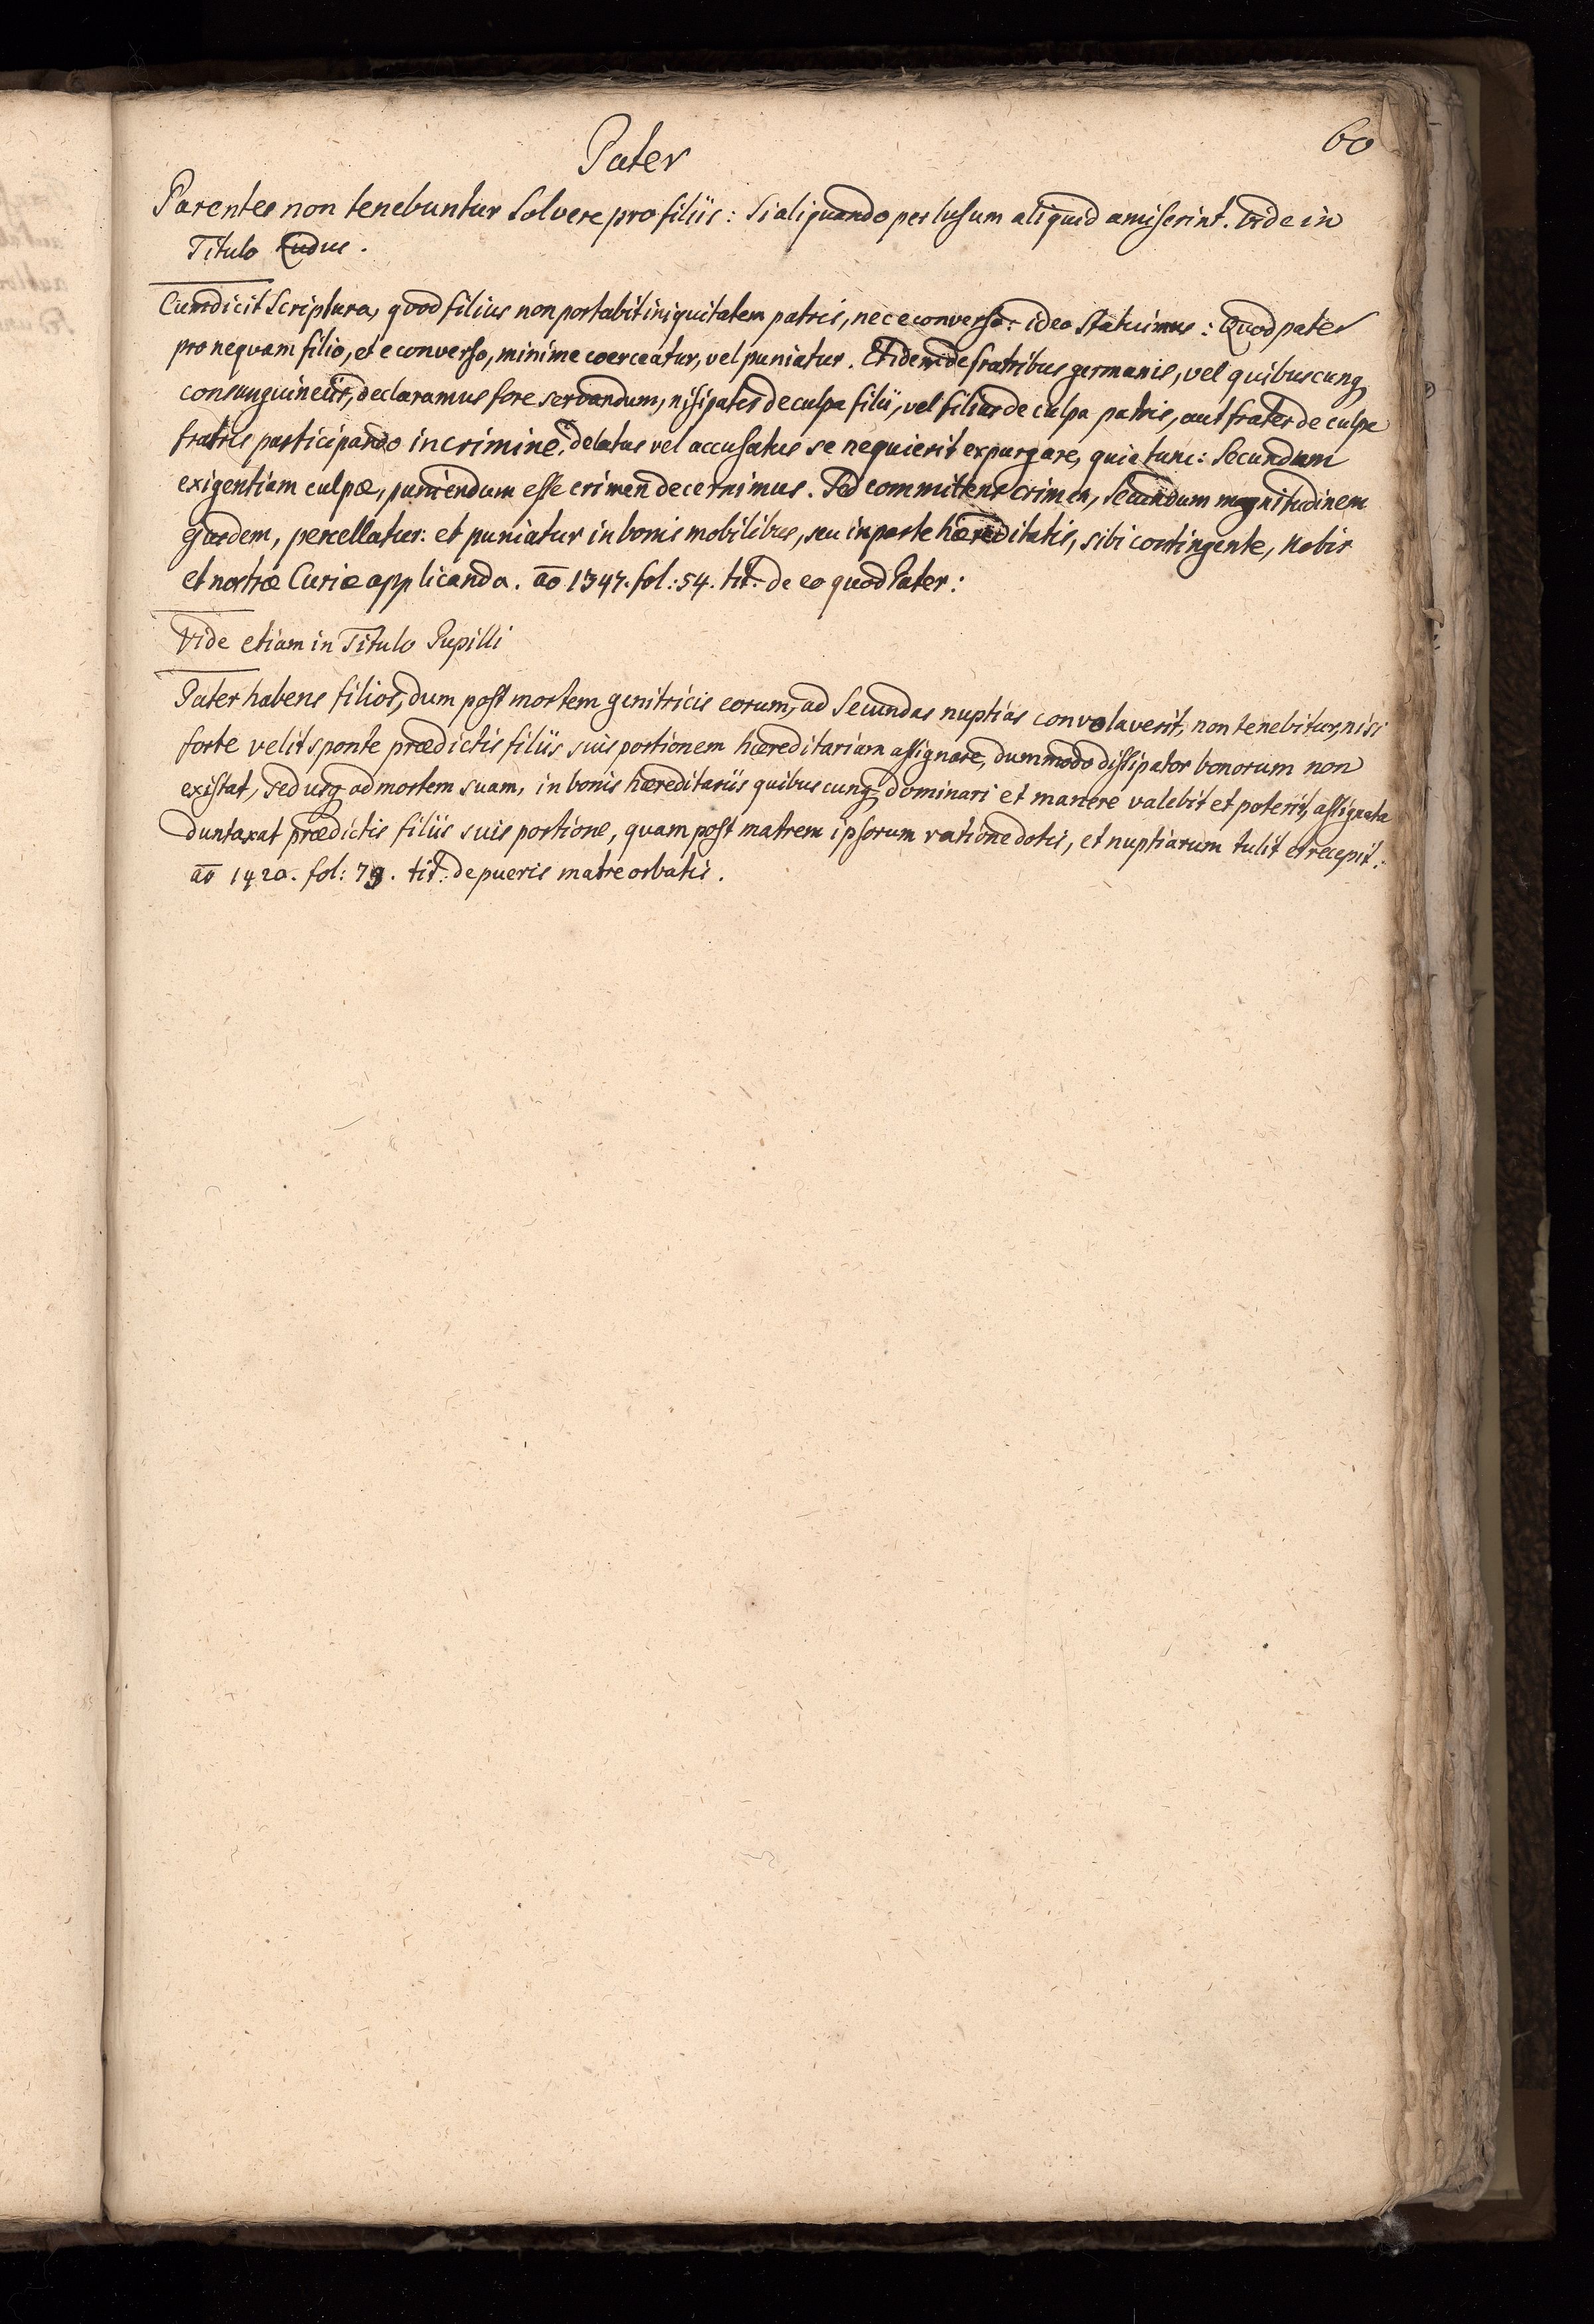 60
Pater
Parentes non tenebuntur Solvere pro filiis: Si aliquando per lusum aliquid amiserint. Vide in
Titulo Ludus.
Cum dicit Scriptura, quod filius non portabit iniquitatem patris, nec e converso: ideo Statuimus: Quod pater
pro nequam filio, et e converso, minime coerceatur, vel puniatur. Et idem de fratribus germanis, vel quibuscunq
consanguineis, declaramus fore servandum, nisi pater de culpa filii, vel filius de culpa patris, aut frater de culpa
fratris participando in crimine, delatus vel accusatus se nequierit expurgare, quia tunc: Secundum
exigentiam culpæ, puniendum esse crimen decernimus. Sed committens crimen, Secundum magnitudinem
ejusdem, percellatur: et puniatur in bonis mobilibus, seu in parte hæreditatis, sibi contingente, nobis
et nostræ Curiæ applicanda. ao 1347. fol: 54. tit: de eo quod Pater:
Vide etiam in Titulo Pupilli
Pater habens filios, dum post mortem genitricis eorum, ad Secundas nuptias convolaverit, non tenebitur, nisi
forte velit sponte prædictis filiis suis portionem hæreditariam assignare, dummodo dissipator bonorum non
existat, sed usq ad mortem suam, in bonis hæreditariis quibuscunq, dominari et manere valebit et poterit, assignata
duntaxat prædictis filiis suis portione, quam post matrem ipsorum ratione dotis, et nuptiarum tulit et recepit.
ao 1420. fol: 79. tit: de pueris matre orbatis.